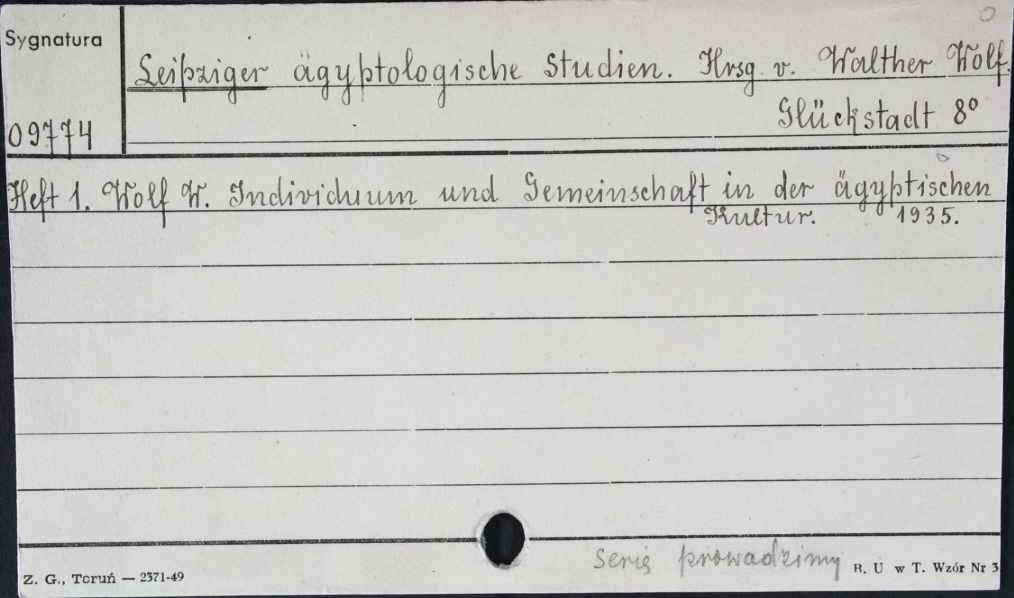 Sygnatura
Leipziger ägyptologische Studien. Hrsg. v. Walther Wolf.
Glückstadt 8°
09774
Heft 1. Wolf W. Individuum und Gemeinschaft in der ägyptischen
Kultur. 1935.
Serię prowadzimy
Z. G., Toruń — 2371-49
B. U w T. Wzór Nr 3